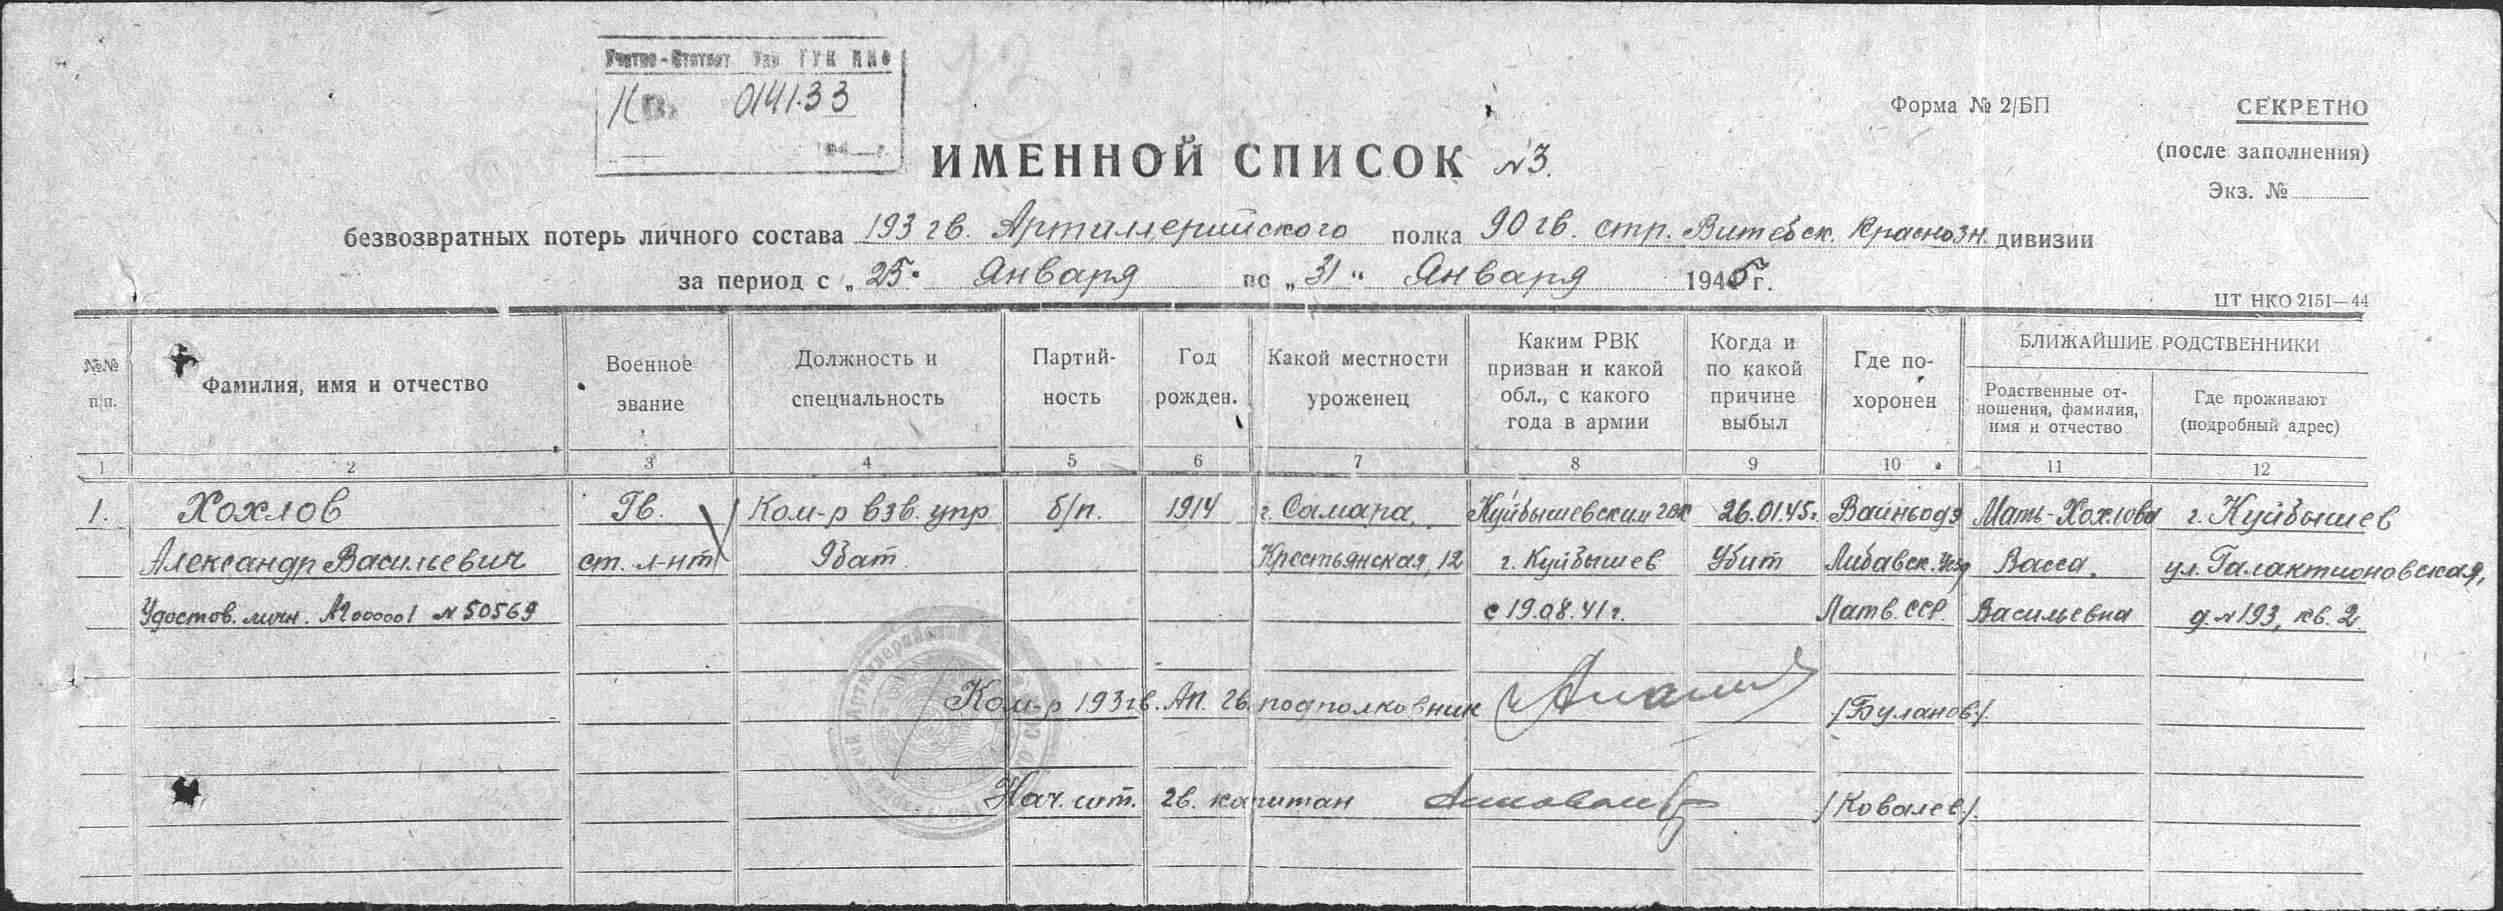 Учетно-Статист Упр ГУК НКО
014133
Форма № 2/БП
СЕКРЕТНО
(после заполнения)
Экз. №
ИМЕННОЙ СПИСОК №3.
безвозвратных потерь личного состава 193 гв. Артиллерийского полка 90 гв. стр. Витебск. Краснозн. дивизии
за период с „25" Января по „31" Января 1945 г.
ЦТ НКО 2151—44
№№ п/п.
Фамилия, имя и отчество
Военное звание
Должность и специальность
Партий-ность
Год рожден.
Какой местности уроженец
Каким РВК призван и какой обл., с какого года в армии
Когда и по какой причине выбыл
Где по-хоронен
БЛИЖАЙШИЕ РОДСТВЕННИКИ
Родственные от-ношения, фамилия, имя и отчество
Где проживают (подробный адрес)
1 2 3 4 5 6 7 8 9 10 11 12
1. Хохлов Гв. Ком-р взв. упр б/п. 1914 г. Самара, Куйбышевским 26.01.45г. Вайньодэ Мать-Хохлова г. Куйбышев
Александр Васильевич ст. л-нт бат. Крестьянская, 12 г. Куйбышев Убит Либавск. Васса ул. Галактионовская,
Удостов. личн. № 50569 с 19.08.41 г. Латв. ССР. Васильевна д. №193, кв. 2
Ком-р 193 гв. АП. гв. подполковник /Буланов/.
Нач. шт. гв. капитан /Ковалев/.